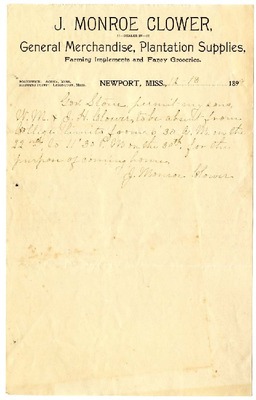 J. MONROE CLOWER,
—DEALER IN—
General Merchandise, Plantation Supplies,
Farming Implements and Fancy Groceries.
NEWPORT, MISS., 12 18 189
permit my sons
W. M. & J. H. Clower, to be absent from
College limits from 9 30 A. M. on the
22nd to 11 30 P. M. on the 30th for the
purpose of coming home.
J. Monroe Clower